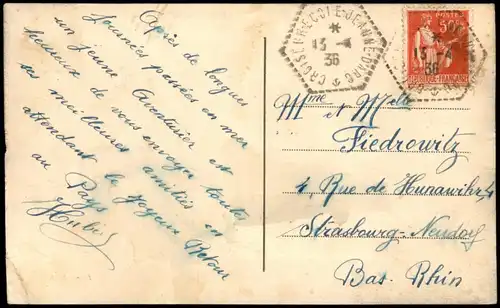 Après de longues
Journées passées en mer
un jeune Aventurier est
heureux de vous envoyer toutes
ses meilleures amitiés en
attendant le joyeux Retour
au Pays
CROISEUR-ECOLE-JEANNE D'ARC
*
13 -4
36
POSTES
50c
REPUBLIQUE-FRANÇAISE
13 -4
36
Mme et Melle
Fiedrowitz
4, Rue de Hunawihr
Strasbourg-Neudorf
Bas. Rhin